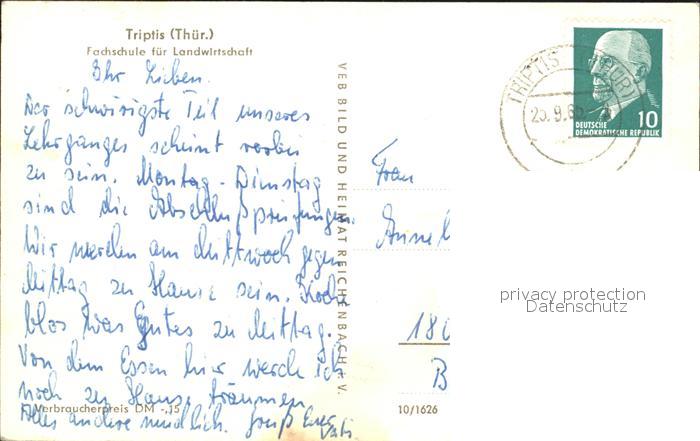 Triptis (Thür.)
Fachschule für Landwirtschaft
Ihr Lieben.
Der schwierigste Teil unseres
Lehrganges scheint vorbei
zu sein. Montag - Dienstag
sind die Abschlußprüfungen.
Wir werden am Mittwoch gegen
Mittag zu Hause sein. Koch
blos was Gutes zu Mittag.
Von dem Essen hier werde ich
noch zu Hause träumen.
Alles andere mündlich. Gruß Euer
Vati
Verbraucherpreis DM -,15
VEB BILD UND HEIMAT REICHENBACH i. V.
TRIPTIS (THÜR)
25.9.65
10
DEUTSCHE
DEMOKRATISCHE REPUBLIK
Frau
180
B
10/1626
privacy protection
Datenschutz